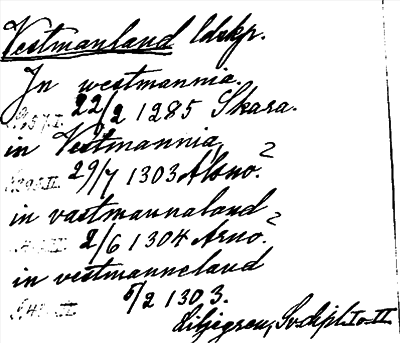 Vestmanland ldskp.
In westmannia.
22/2 1285 Skara.
in Vestmannia
29/7 1303 Alsno.?
in vastmannaland
2/6 1304 Arno.?
in vestmanneland
5/2 1303.
Liljegren, Sv. dipl. I o II